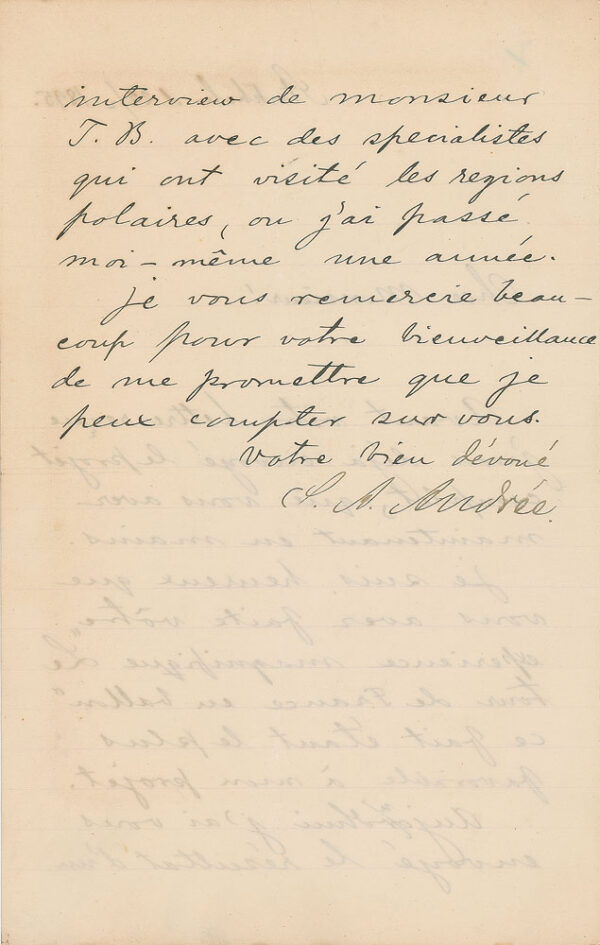 interview de monsieur
T. B. avec des specialistes
qui ont visité les regions
polaires, ou j'ai passé
moi-même une année.
Je vous remercie beau-
coup pour votre bienveillance
de me promettre que je
peux compter sur vous.
Votre bien dévoué
S. A. Andrée.